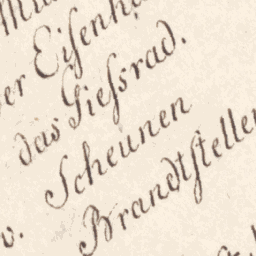 er Eiſenh
das Gieſsrad.
Scheunen
v. Brandtſteller